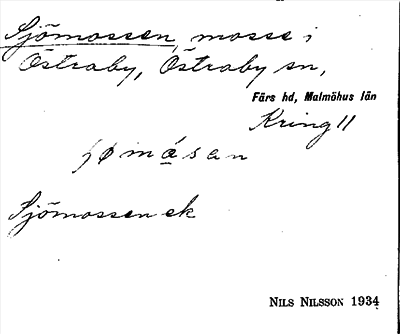 Sjömossen, mosse i
Östraby, Östraby sn,
Färs hd, Malmöhus län
Kring 11
Sjömossen ek
NILS NILSSON 1934